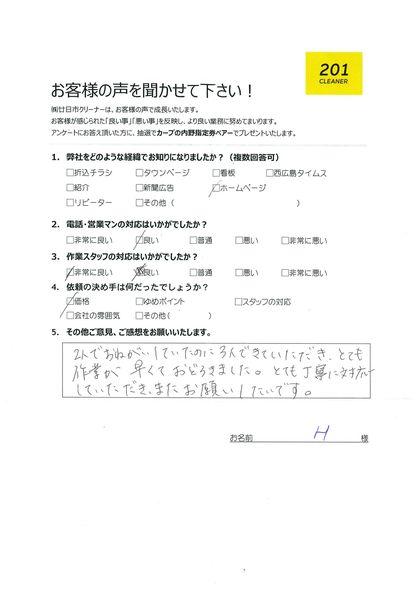 201
CLEANER
お客様の声を聞かせて下さい！
㈱廿日市クリーナーは、お客様の声で成長いたします。
お客様が感じられた「良い事」「悪い事」を反映し、より良い業務に努めてまいります。
アンケートにお答え頂いた方に、抽選でカープの内野指定券ペアーでプレゼントいたします。
1. 弊社をどのような経緯でお知りになりましたか？（複数回答可）
□折込チラシ □タウンページ □看板 □西広島タイムス
□紹介 □新聞広告 □ホームページ
□リピーター □その他（ ）
2. 電話・営業マンの対応はいかがでしたか？
□非常に良い □良い □普通 □悪い □非常に悪い
3. 作業スタッフの対応はいかがでしたか？
□非常に良い □良い □普通 □悪い □非常に悪い
4. 依頼の決め手は何だったでしょうか？
□価格 □ゆめポイント □スタッフの対応
□会社の雰囲気 □その他（ ）
5. その他ご意見、ご感想をお願いいたします。
2人でおねがいしていたのに3人できていただき、とても
作業が早くておどろきました。とても丁寧に対応
していただき、またお願いしたいです。
お名前 H 様